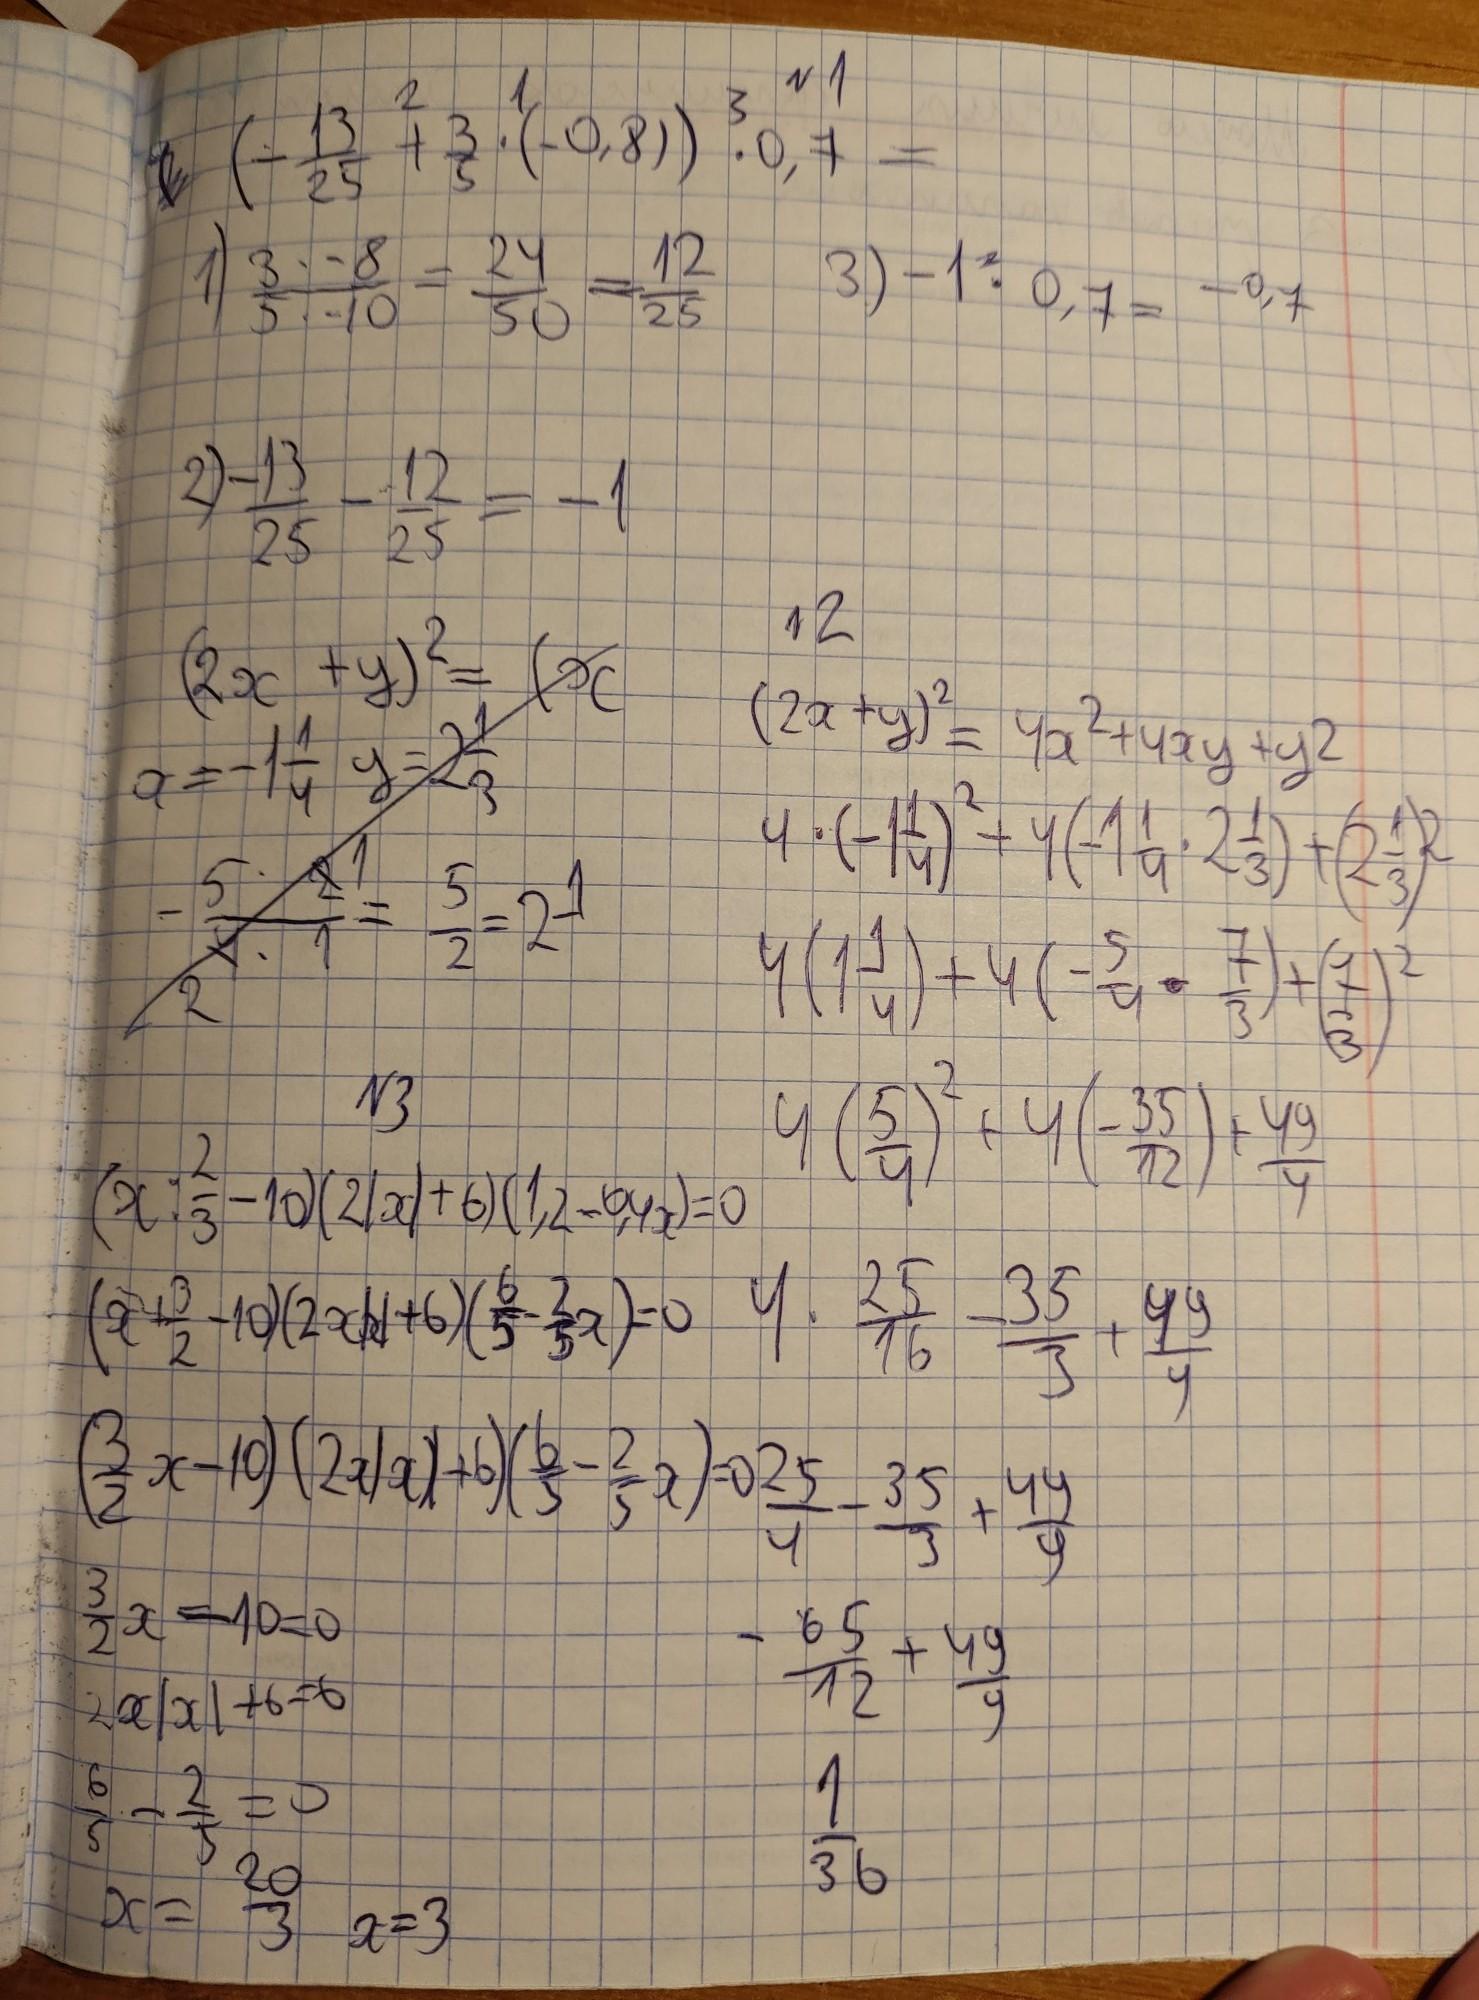 №1
(-13/25 + 3/5 · (-0,8)) · 0,7 =
1) 3·-8/5·-10 = 24/50 = 12/25
3) -1 · 0,7 = -0,7
2) -13/25 - 12/25 = -1
(2x + y)² = (x
x = -1 1/4 y = 2 1/3
- 5·2/4·1 = 5/2 = 2 1
№2
(2x+y)² = 4x²+4xy+y2
4·(-1 1/4)² + 4(-1 1/4 · 2 1/3) + (2 1/3)2
4(1 1/4) + 4(-5/4 · 7/3) + (7/3)²
4(5/4)² + 4(-35/12) + 49/4
4 · 25/16 - 35/3 + 49/4
25/4 - 35/3 + 49/9
- 65/12 + 49/9
1/36
№3
(x : 2/3 - 10)(2|x|+6)(1,2-0,4x)=0
(x · 3/2 - 10)(2x|x|+6)(6/5 - 2/5x)=0
(3/2x-10)(2x|x|+6)(6/5 - 2/5x)=0
3/2x - 10=0
2x|x|+6=6
6/5 - 2/5 = 0
x = 20/3 x=3